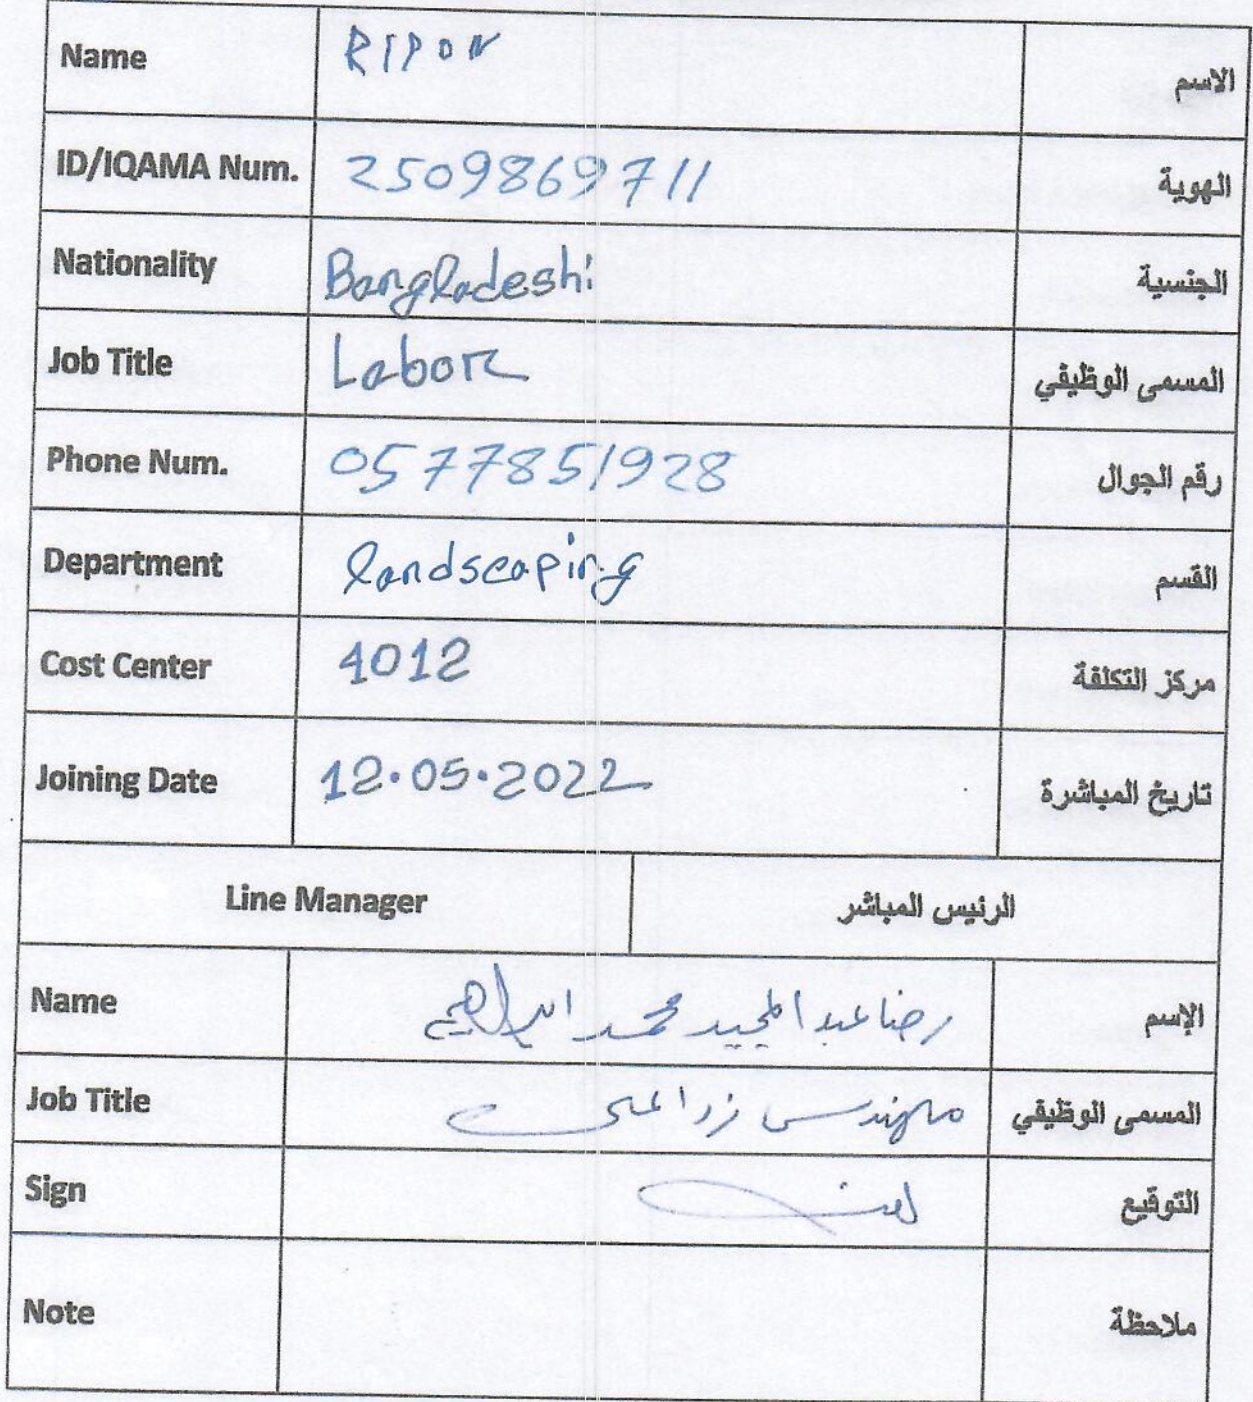 Name RIPON الاسم
ID/IQAMA Num. 2509869711 الهوية
Nationality Bangladeshi الجنسية
Job Title Labor المسمى الوظيفي
Phone Num. 0577851928 رقم الجوال
Department landscaping القسم
Cost Center 4012 مركز التكلفة
Joining Date 12.05.2022 تاريخ المباشرة
Line Manager الرئيس المباشر
Name رضا عبد المجيد محمد ابراهيم الإسم
Job Title مهندس زراعى المسمى الوظيفي
Sign التوقيع
Note ملاحظة